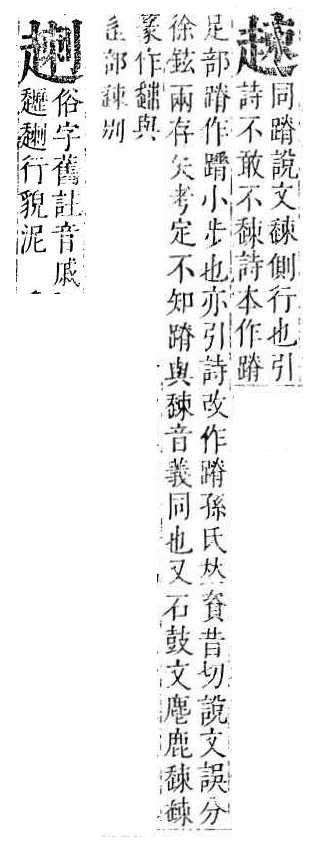 趚
同蹐說文趚側行也引
詩不敢不趚詩本作蹐
足部蹐作躋小步也亦引詩改作蹐孫氏𠀤資昔切說文誤分
徐鉉兩存失考定不知蹐與趚音義同也又石鼓文麀鹿趚趚
篆作與
辵部別
俗字舊註音戚
行貌泥